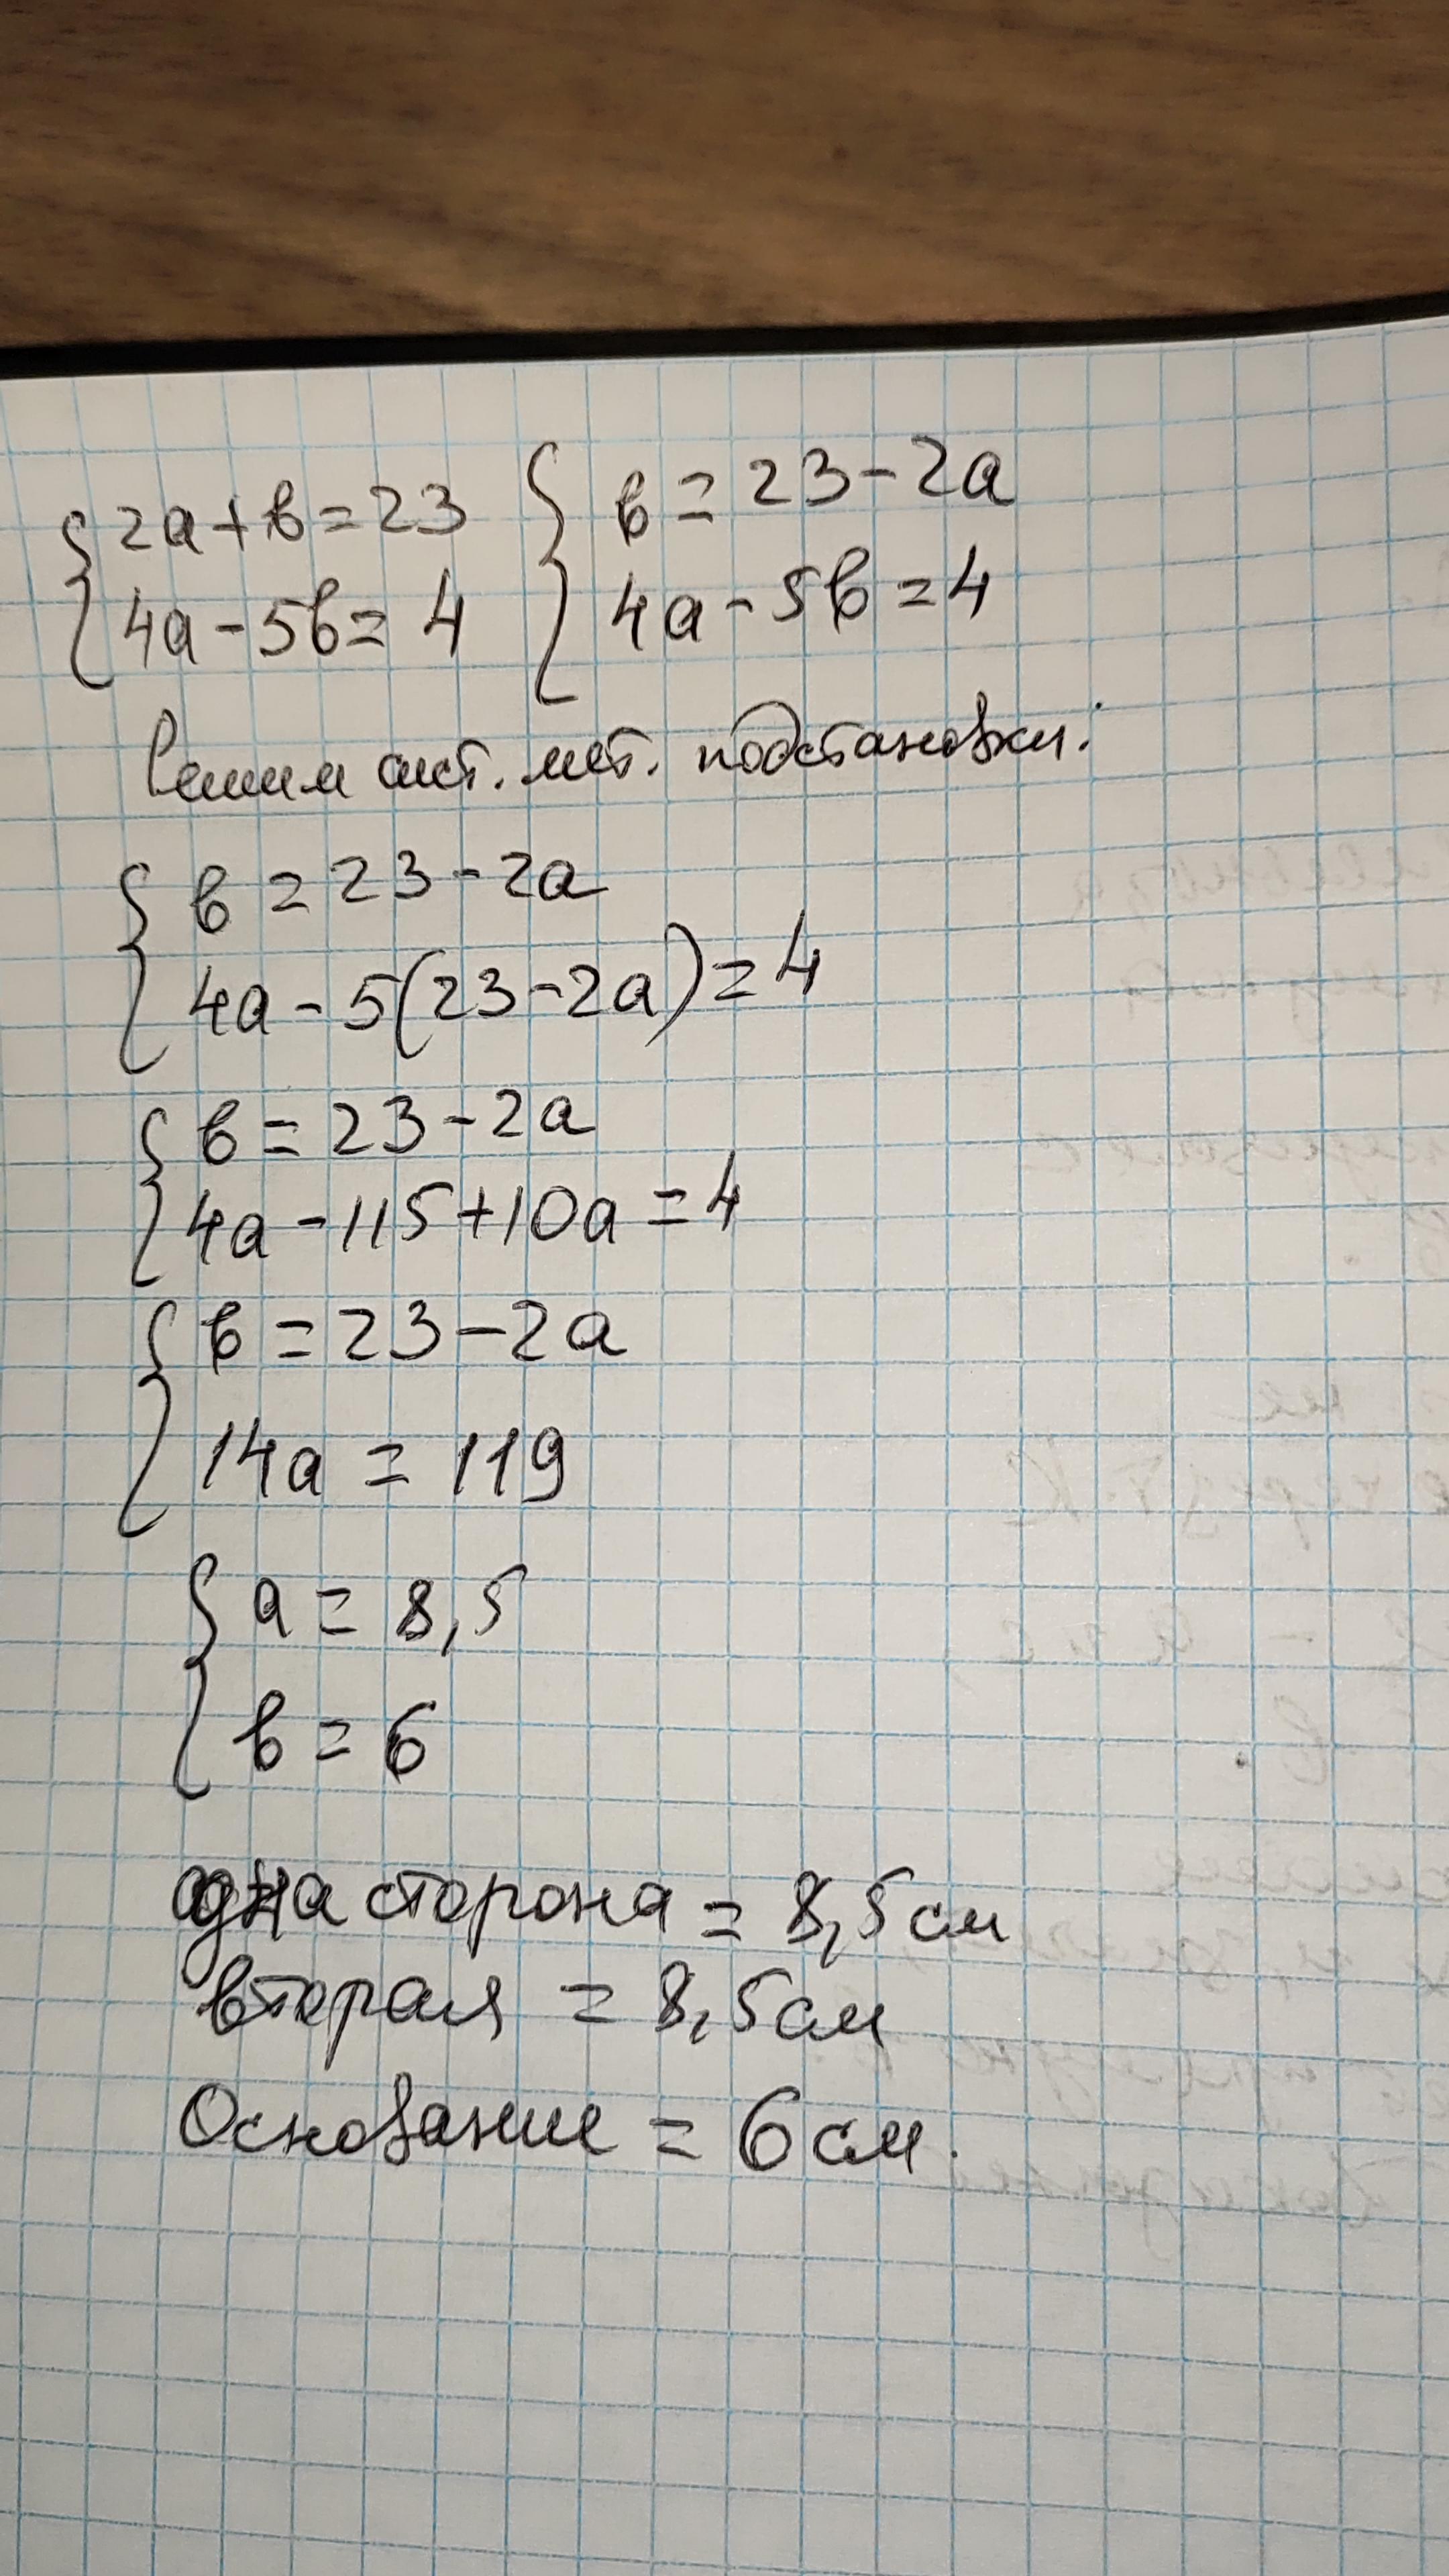 2а+в=23
4а-5в=4
в=23-2а
4а-5в=4
Решим сист. мет. подстановки:
в=23-2а
4а-5(23-2а)=4
в=23-2а
4а-115+10а=4
в=23-2а
14а=119
а=8,5
в=6
одна сторона=8,5см
вторая=8,5см
Основание=6см.